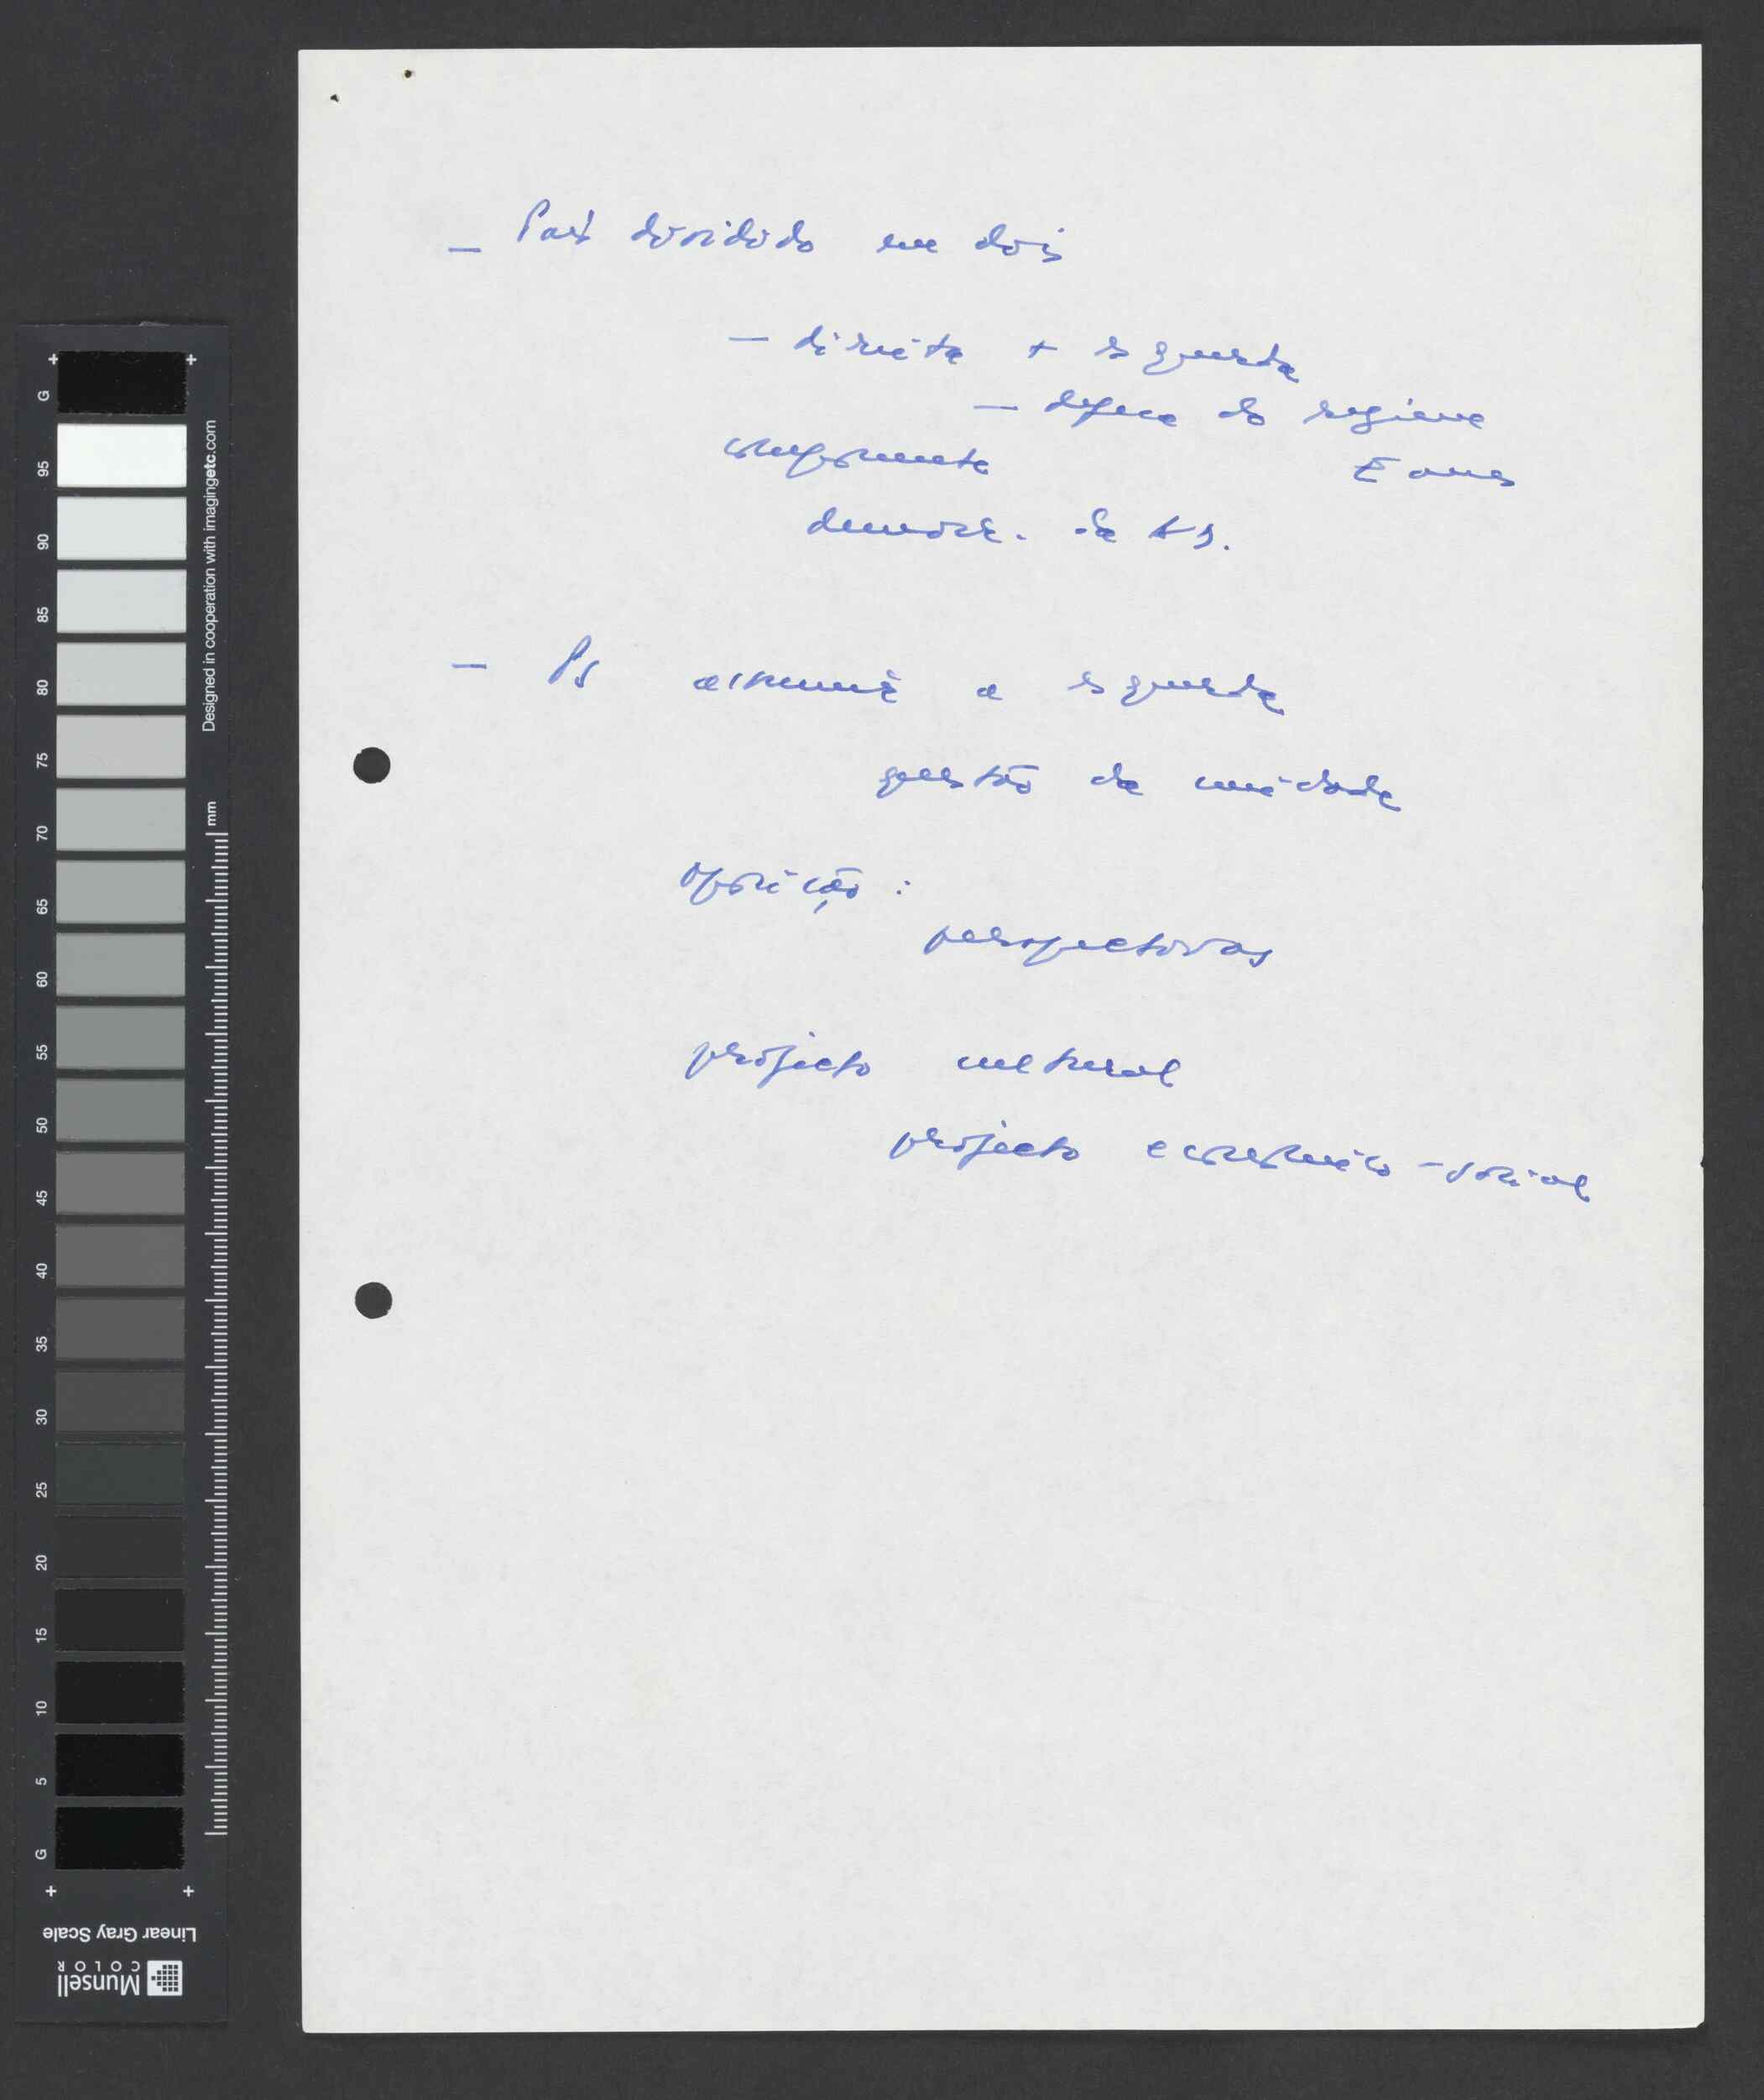 — País dividido em dois
— direita + esquerda
— defesa do regime
Eanes
democr. da
— PS assumir a esquerda
questão da unidade
oposição :
perspectivas
projecto cultural
projecto económico-social
G 95 90 85 80 75 70 65 60 55 50 45 40 35 30 25 20 15 10 5 G
Designed in cooperation with imagingetc.com
mm
Linear Gray Scale
Munsell
COLOR